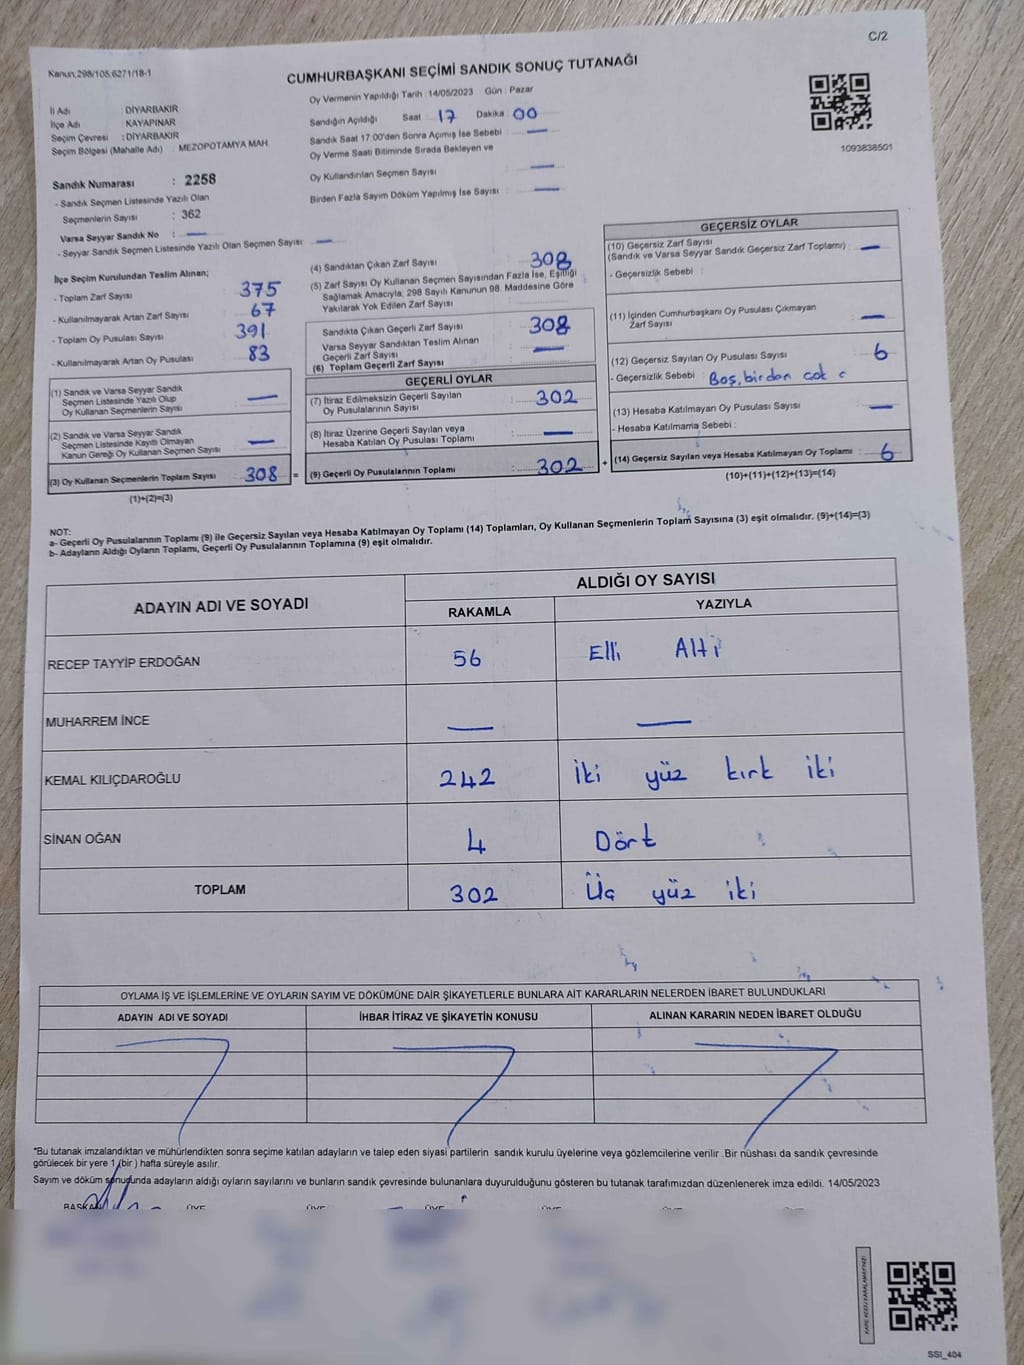 C/2
Kanun:298/105;6271/18-1
CUMHURBAŞKANI SEÇİMİ SANDIK SONUÇ TUTANAĞI
İl Adı : DİYARBAKIR
İlçe Adı : KAYAPINAR
Seçim Çevresi : DİYARBAKIR
Seçim Bölgesi (Mahalle Adı) : MEZOPOTAMYA MAH.
Oy Vermenin Yapıldığı Tarih : 14/05/2023 Gün : Pazar
Sandığın Açıldığı Saat : 17 Dakika : 00
Sandık Saat 17:00'den Sonra Açımış İse Sebebi : —
Oy Verme Saati Bitiminde Sırada Bekleyen ve
Oy Kullandırılan Seçmen Sayısı : —
Birden Fazla Sayım Döküm Yapılmış İse Sayısı : —
1093838501
Sandık Numarası : 2258
- Sandık Seçmen Listesinde Yazılı Olan
Seçmenlerin Sayısı : 362
Varsa Seyyar Sandık No : —
- Seyyar Sandık Seçmen Listesinde Yazılı Olan Seçmen Sayısı: —
İlçe Seçim Kurulundan Teslim Alınan;
- Toplam Zarf Sayısı : 375
- Kullanılmayarak Artan Zarf Sayısı : 67
- Toplam Oy Pusulası Sayısı : 391
- Kullanılmayarak Artan Oy Pusulası : 83
(1) Sandık ve Varsa Seyyar Sandık
Seçmen Listesinde Yazılı Olup
Oy Kullanan Seçmenlerin Sayısı : —
(2) Sandık ve Varsa Seyyar Sandık
Seçmen Listesinde Kayıtlı Olmayan
Kanun Gereği Oy Kullanan Seçmen Sayısı : —
(3) Oy Kullanan Seçmenlerin Toplam Sayısı : 308 =
(1)+(2)=(3)
(4) Sandıktan Çıkan Zarf Sayısı : 308
(5) Zarf Sayısı Oy Kullanan Seçmen Sayısından Fazla İse, Eşitliği
Sağlamak Amacıyla, 298 Sayılı Kanunun 98. Maddesine Göre
Yakılarak Yok Edilen Zarf Sayısı :
Sandıkta Çıkan Geçerli Zarf Sayısı : 308
Varsa Seyyar Sandıktan Teslim Alınan
Geçerli Zarf Sayısı : —
(6) Toplam Geçerli Zarf Sayısı :
GEÇERLİ OYLAR
(7) İtiraz Edilmeksizin Geçerli Sayılan
Oy Pusulalarının Sayısı : 302
(8) İtiraz Üzerine Geçerli Sayılan veya
Hesaba Katılan Oy Pusulası Toplamı : —
(9) Geçerli Oy Pusulalarının Toplamı : 302 +
GEÇERSİZ OYLAR
(10) Geçersiz Zarf Sayısı
(Sandık ve Varsa Seyyar Sandık Geçersiz Zarf Toplamı) : —
- Geçersizlik Sebebi :
(11) İçinden Cumhurbaşkanı Oy Pusulası Çıkmayan
Zarf Sayısı : —
(12) Geçersiz Sayılan Oy Pusulası Sayısı : 6
- Geçersizlik Sebebi : Boş, birden cok
(13) Hesaba Katılmayan Oy Pusulası Sayısı : —
- Hesaba Katılmama Sebebi :
(14) Geçersiz Sayılan veya Hesaba Katılmayan Oy Toplamı : 6
(10)+(11)+(12)+(13)=(14)
NOT:
a- Geçerli Oy Pusulalarının Toplamı (9) ile Geçersiz Sayılan veya Hesaba Katılmayan Oy Toplamı (14) Toplamları, Oy Kullanan Seçmenlerin Toplam Sayısına (3) eşit olmalıdır. (9)+(14)=(3)
b- Adayların Aldığı Oyların Toplamı, Geçerli Oy Pusulalarının Toplamına (9) eşit olmalıdır.
ADAYIN ADI VE SOYADI
ALDIĞI OY SAYISI
RAKAMLA YAZIYLA
RECEP TAYYİP ERDOĞAN 56 Elli Altı
MUHARREM İNCE — —
KEMAL KILIÇDAROĞLU 242 İki yüz kırk iki
SİNAN OĞAN 4 Dört
TOPLAM 302 Üç yüz iki
OYLAMA İŞ VE İŞLEMLERİNE VE OYLARIN SAYIM VE DÖKÜMÜNE DAİR ŞİKAYETLERLE BUNLARA AİT KARARLARIN NELERDEN İBARET BULUNDUKLARI
ADAYIN ADI VE SOYADI İHBAR İTİRAZ VE ŞİKAYETİN KONUSU ALINAN KARARIN NEDEN İBARET OLDUĞU
*Bu tutanak imzalandıktan ve mühürlendikten sonra seçime katılan adayların ve talep eden siyasi partilerin sandık kurulu üyelerine veya gözlemcilerine verilir .Bir nüshası da sandık çevresinde
görülecek bir yere 1 (bir ) hafta süreyle asılır.
Sayım ve döküm sonucunda adayların aldığı oyların sayılarını ve bunların sandık çevresinde bulunanlara duyurulduğunu gösteren bu tutanak tarafımızdan düzenlenerek imza edildi. 14/05/2023
BAŞKAN ÜYE ÜYE ÜYE ÜYE
SSI_404